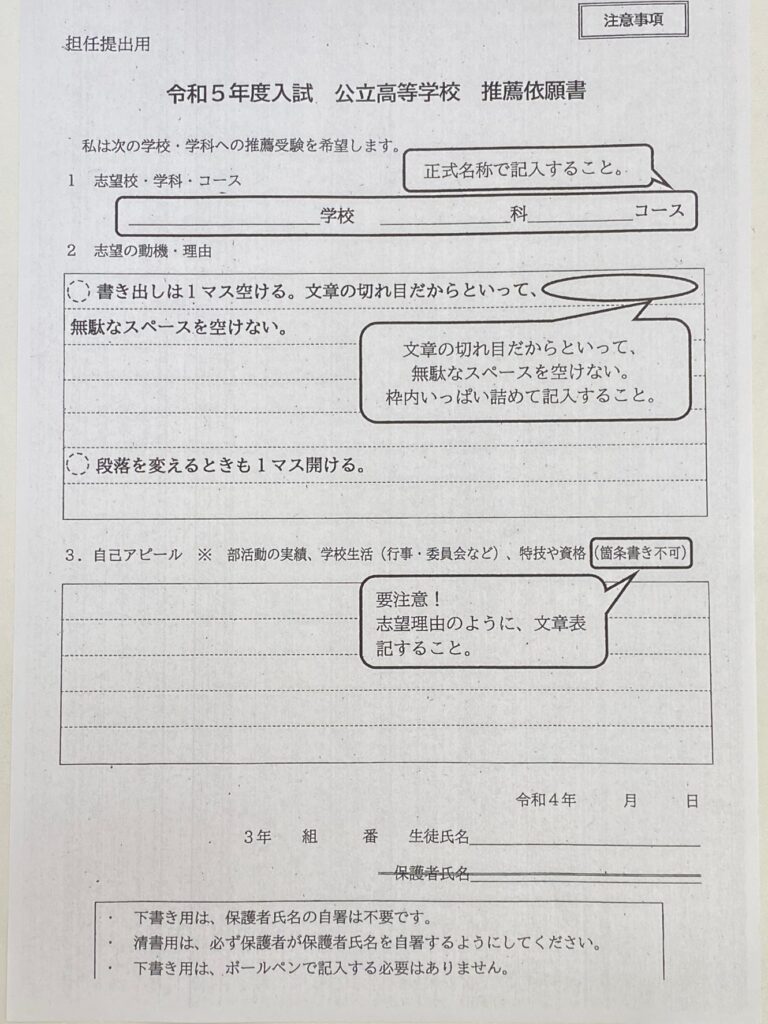 注意事項
担任提出用
令和5年度入試 公立高等学校 推薦依願書
私は次の学校・学科への推薦受験を希望します。
正式名称で記入すること。
1 志望校・学科・コース
学校 科 コース
2 志望の動機・理由
書き出しは1マス空ける。文章の切れ目だからといって、
無駄なスペースを空けない。
文章の切れ目だからといって、
無駄なスペースを空けない。
枠内いっぱい詰めて記入すること。
段落を変えるときも1マス開ける。
3．自己アピール ※ 部活動の実績、学校生活（行事・委員会など）、特技や資格（箇条書き不可）
要注意！
志望理由のように、文章表
記すること。
令和4年 月 日
3年 組 番 生徒氏名
保護者氏名
・ 下書き用は、保護者氏名の自署は不要です。
・ 清書用は、必ず保護者が保護者氏名を自署するようにしてください。
・ 下書き用は、ボールペンで記入する必要はありません。